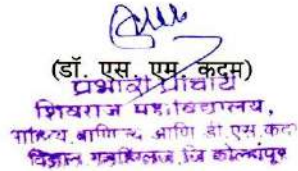 (डॉ. एस. एम. कदम)
प्रभारी प्राचार्य
शिवराज महाविद्यालय,
वाणिज्य आणि डी.एस.कदम
विज्ञान गडहिंग्लज जि कोल्हापूर